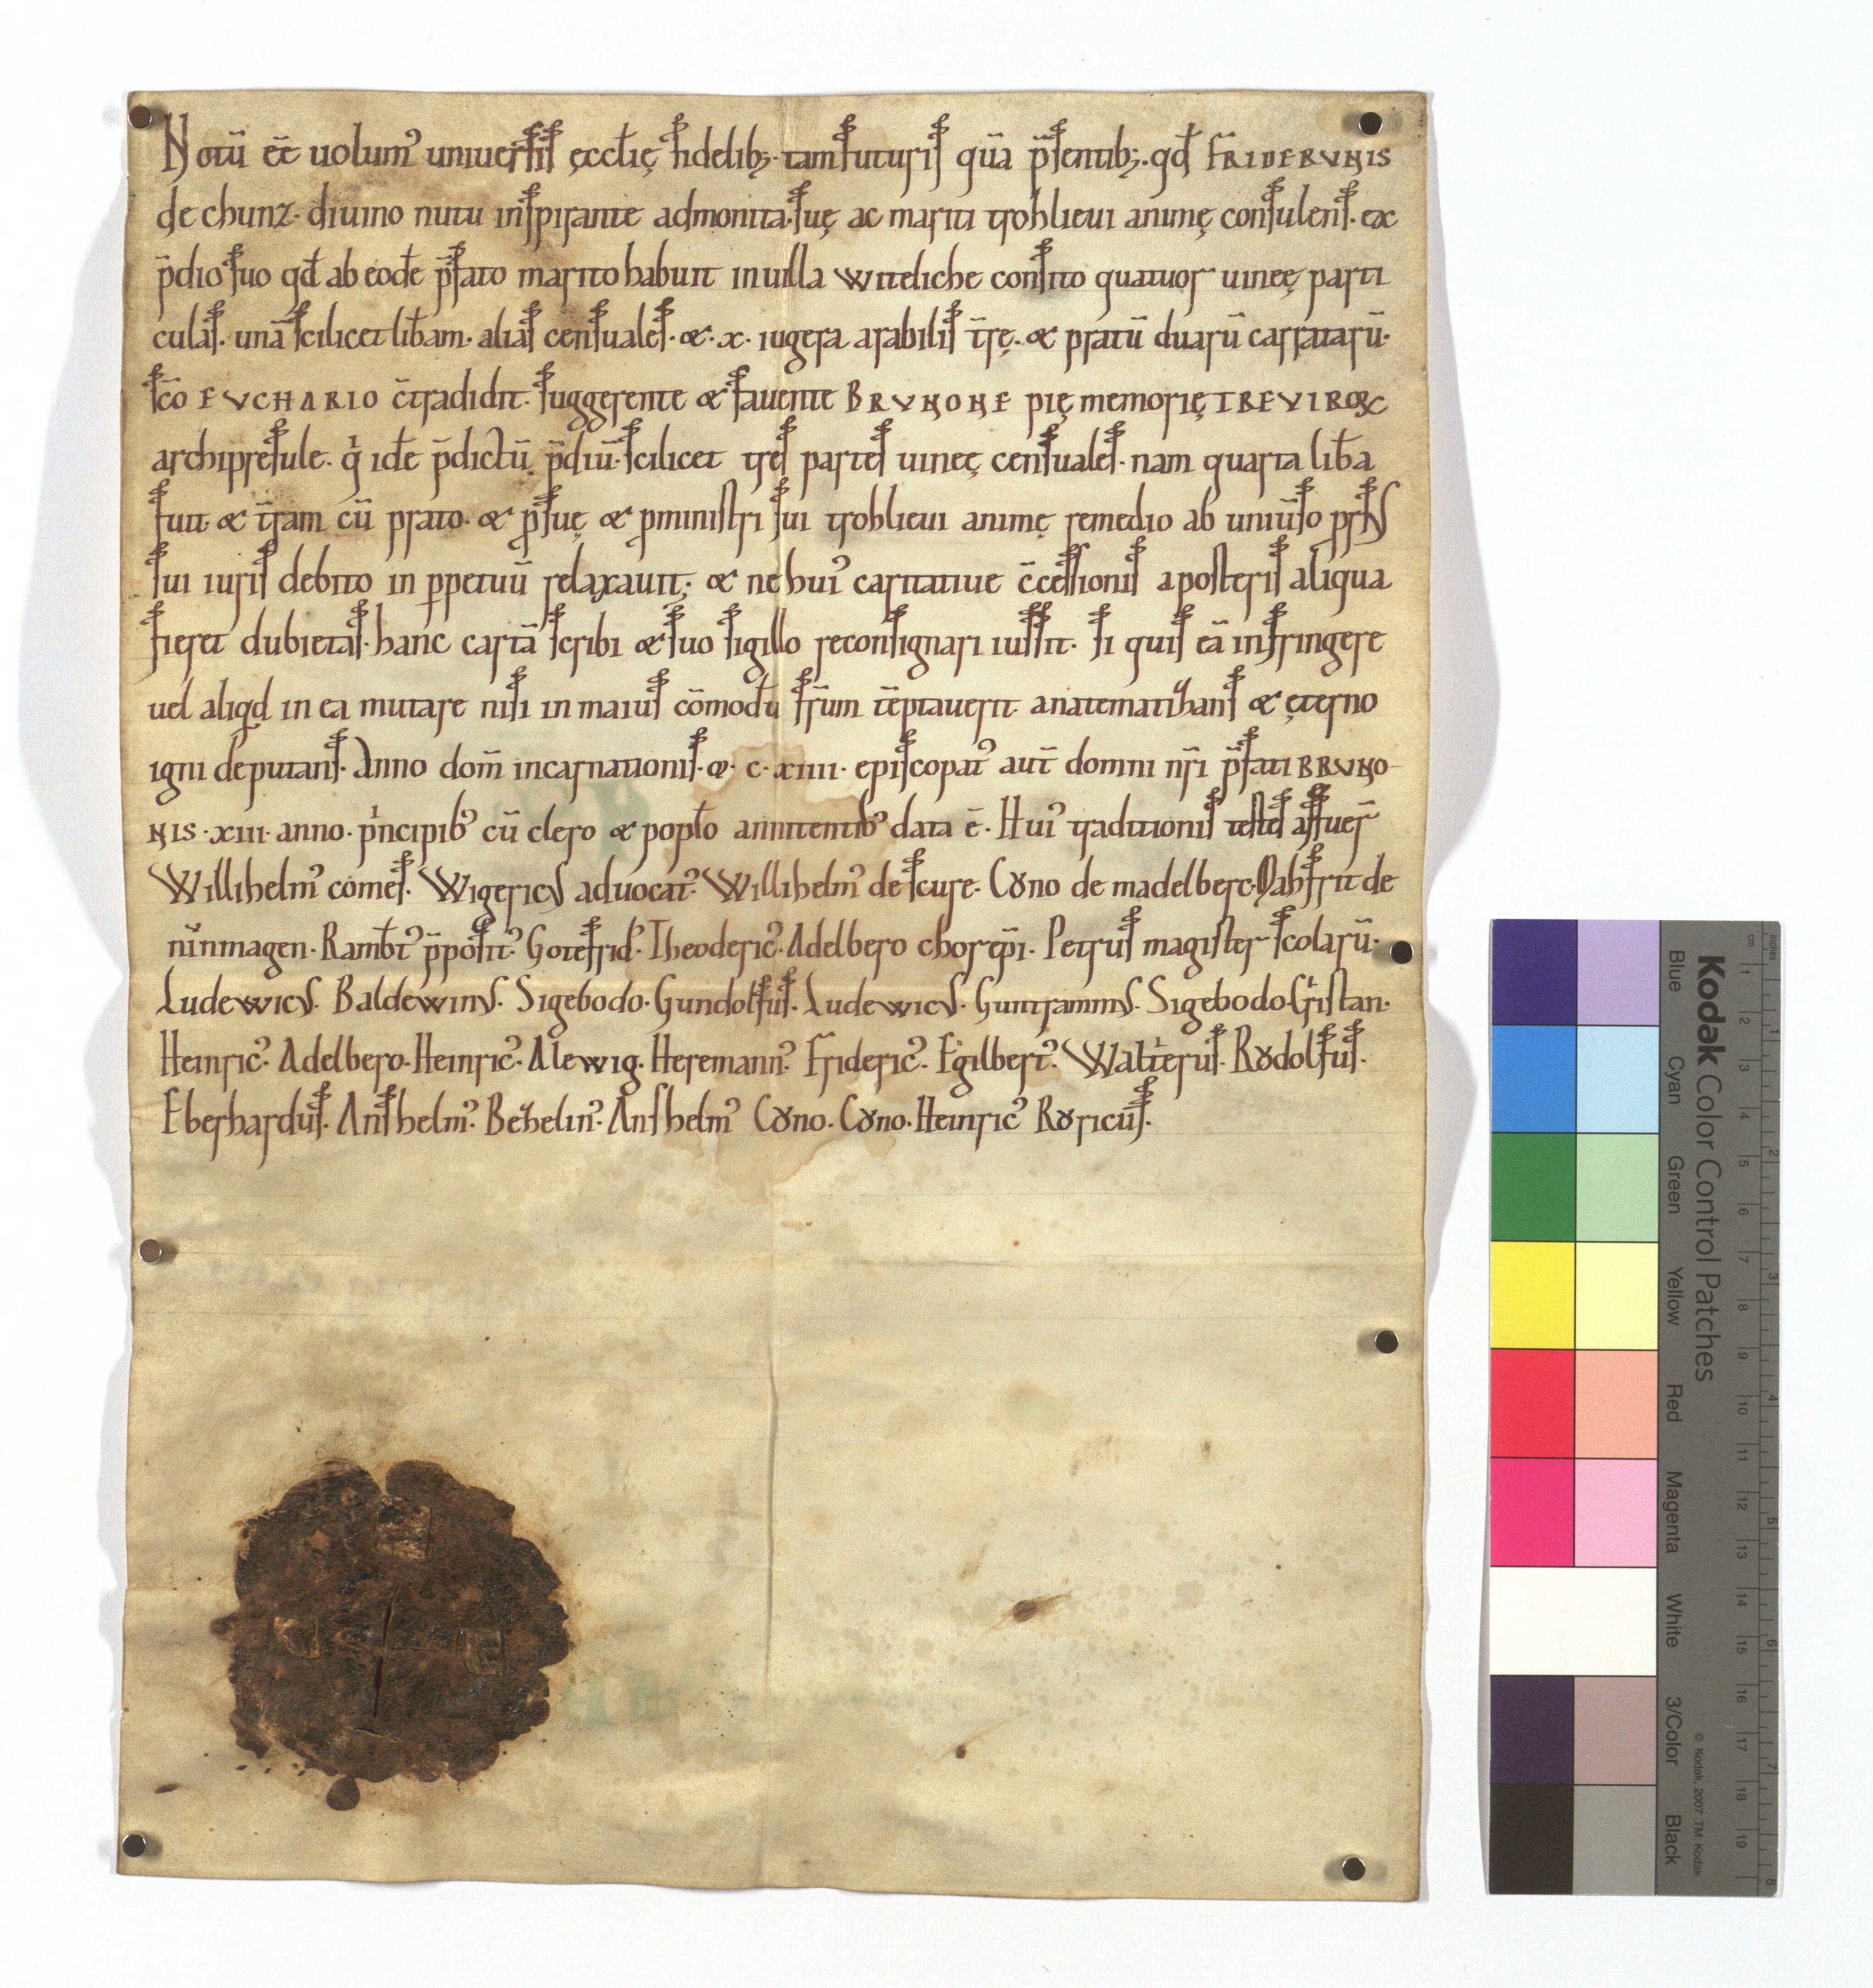 Notū ēē uolumꝰ uniuersis ęccłię fidelibꝫ. tam futuris quā p̄sentibꝫ. qđ FRIDERVNIS
de chunz. diuino nutu inspirante admonita. suę ac mariti trohlieui animę consulens. ex
p̄dio suo qđ ab eodē p̄fato marito habuit in uilla witeliche consito quatuor uineę parti
culas. unā scilicet lib̄am. alias censuales. & .x. iugera arabilis t̄rę. & pratū duarū carratarū.
sc̄o EVCHARIO c̄tradidit. suggerente & fauente BRVNONE pię memorię TREVIROꝜ
archipresule. qi idē p̄dictū p̄diū. scilicet tres partes uineę censuales. nam quarta lib̄a
fuit. & t̄ram cū prato. & ꝓ suę & ꝓ ministri sui trohlieui animę remedio ab uniūso prsus
sui iuris debito in ꝑpetuū relaxauit; & ne huiꝰ caritatiue c̄cessionis a posteris aliqua
fieret dubietas. hanc cartā scribi & suo sigillo reconsignari iussit. si quis eā infringere
uel aliqd in ea mutare nisi in maius cōmodū fr̄um tēptauerit. anatematizans & ęterno
igni deputans. Anno dom̄ incarnationis. ꝏ. c. xiiii. episcopatꝰ aut̄ domni nr̄i p̄fati BRVNO-
NIS. xiii. anno. pincipibꝰ cū clero & popło annitentibꝰ data ē. Huiꝰ traditionis testes assuer̄
Willihelmꝰ comes. Wigericus aduocatꝰ. Willihelmꝰ de scure. Cůno de madelberc. Nahfrit de
niunmagen. Rambt̄ꝰ p̄positꝰ. Gotefridꝰ. Theodericꝰ. Adelbero chorep̄i. Petrus magister scolarū.
Ludewicus. Baldewinus. Sigebodo. Gundolfus. Ludewicus. Guntrammus. Sigebodo. Cristan.
Heinricꝰ. Adelbero. Heinricꝰ. Alewig. Heremannꝰ. Fridericꝰ. Egilbertꝰ. Walt̄erus. Růdolfus.
Eberhardus. Anshelmꝰ. Bezelinꝰ. Anshelmꝰ Cůno. Cůno. Heinricꝰ Růricus.
Kodak Color Control Patches
Blue
Cyan
Green
Yellow
Red
Magenta
White
3/Color
Black
© Kodak, 2007 TM: Kodak
cm 1 2 3 4 5 6 7 8 9 10 11 12 13 14 15 16 17 18 19
inches 1 2 3 4 5 6 7 8